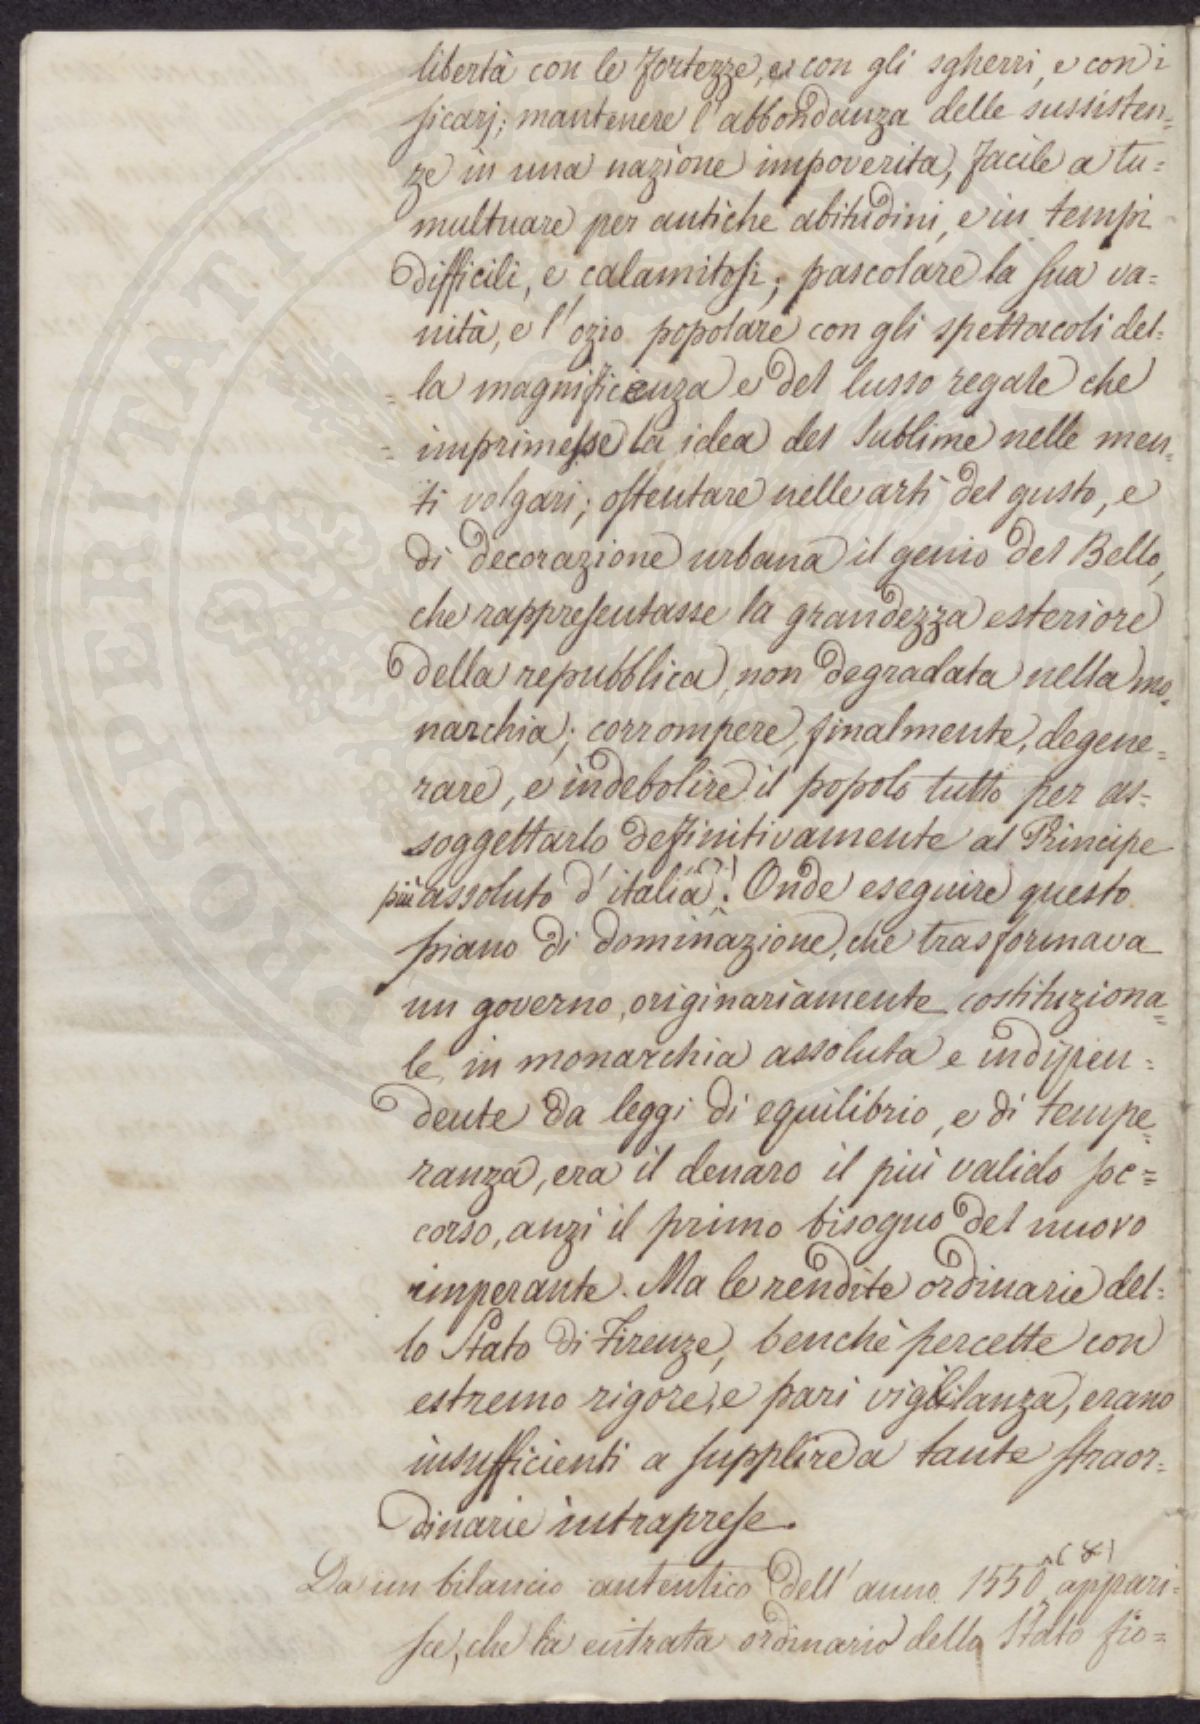 libertà con le fortezze, e con gli sgherri, e con i
sicarj; mantenere l'abbondanza delle sussisten=
ze in una nazione impoverita, facile a tu=
multuare per antiche abitudini, e in tempi
difficili, e calamitosi; pascolare la sua va=
nità, e l'ozio popolare con gli spettacoli del=
=la magnificenza e del lusso regale che
=imprimesse la idea del Sublime nelle men=
ti volgari; ostentare nelle arti del gusto, e
di decorazione urbana il genio del Bello,
che rappresentasse la grandezza esteriore
della repubblica, non degradata nella mo=
narchia; corrompere, finalmente, degene=
rare, e indebolire il popolo tutto per as=
soggettarlo definitivamente al Principe
più assoluto d'italia! Onde eseguire questo
piano di dominazione, che trasformava
un governo, originariamente costituziona=
le, in monarchia assoluta e indipen=
dente da leggi di equilibrio, e di tempe=
ranza, era il denaro il più valido soc=
corso, anzi il primo bisogno del nuovo
imperante. Ma le rendite ordinarie del=
lo Stato di Firenze, benchè percette con
estremo rigore, e pari vigilanza, erano
insufficienti a supplire a tante straor=
dinarie intraprese.
Da un bilancio autentico dell'anno 1550 (&) appari=
sce, che la entrata ordinario dello Stato fio=
PROSPERITATI